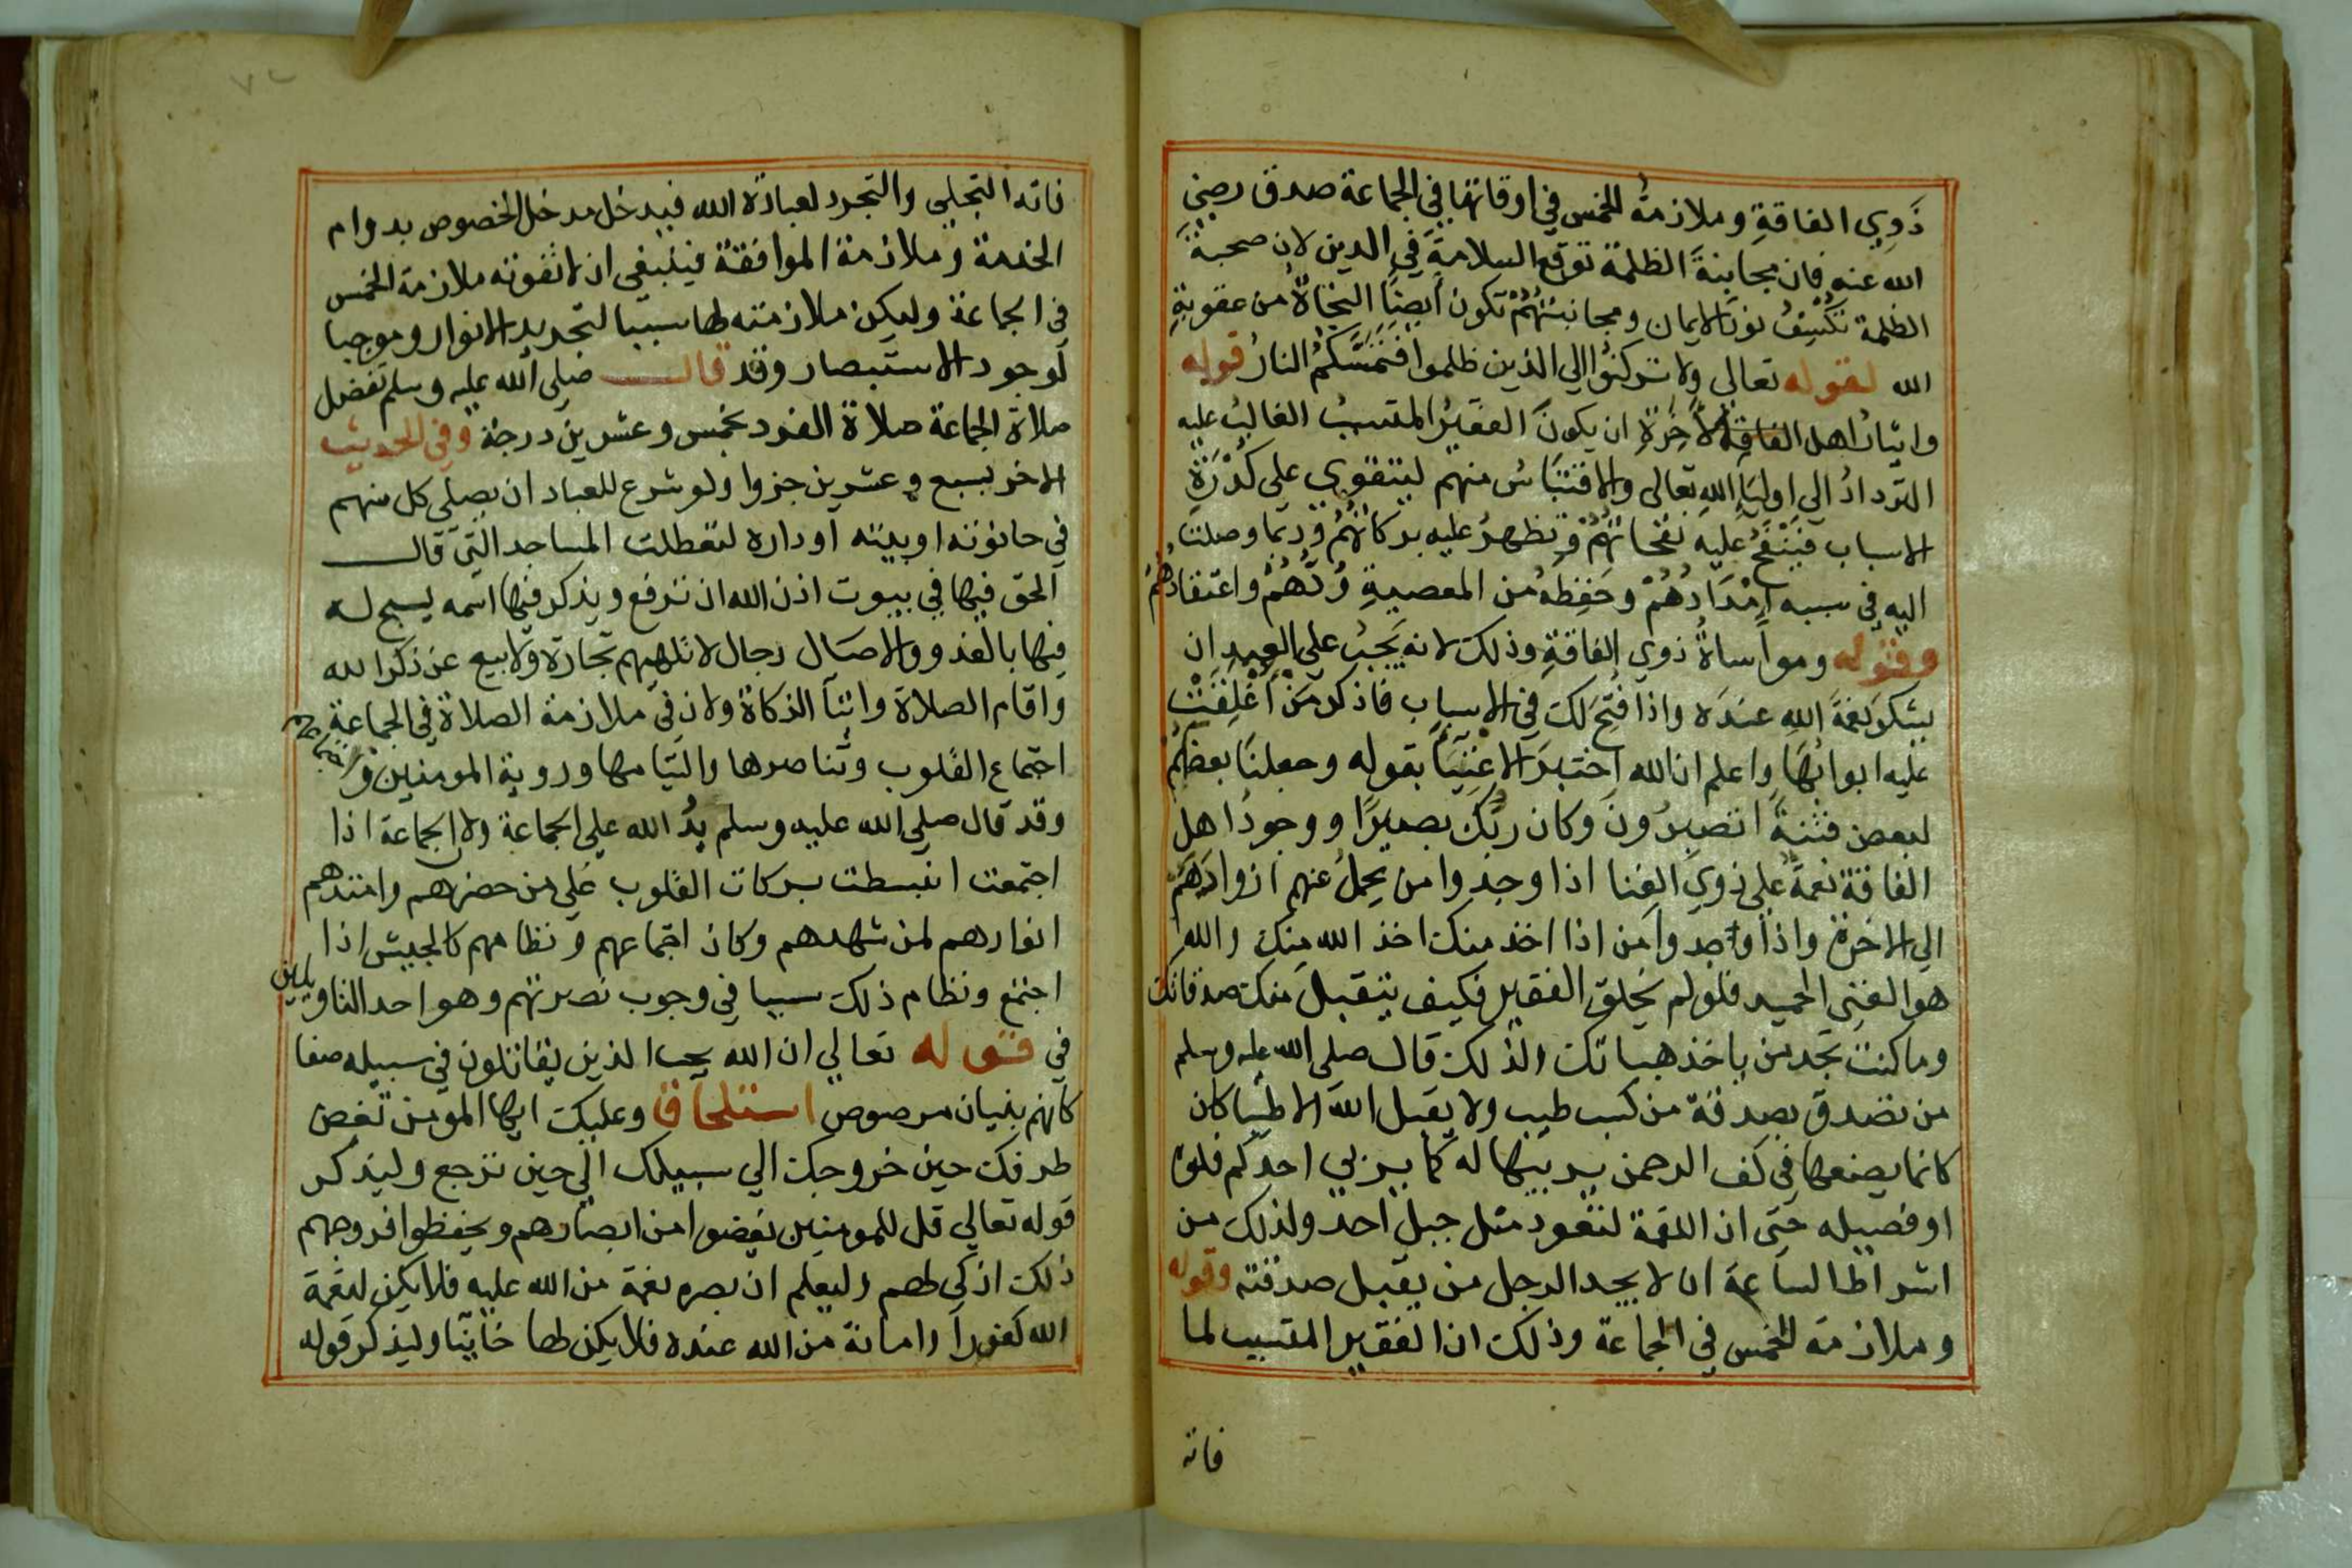 ذَوِي الفاقةِ وملازمةُ الخمس في اوقاتها في الجماعة صدق رضي
الله عنه فان مجانبةَ الظلمة توقع السلامةَ في الدين لان صحبةَ
الظلمة تكسِفُ نورَ الايمان ومجانبتُهُمْ تكون ايضًا النجاةُ من عقوبةِ
الله لقوله تعالي ولا تركنوا الي الذين ظلموا فتمَسَّكم النارُ قوله
وايثارُ اهل الاخرةِ ان يكونَ الفقيرُ المتسببُ الغالبُ عليه
التردادُ الي اولياءِ اللهِ تعالى والاقتباسُ منهم ليتقوى على كُدْرَةِ
الاسباب فتنفحُ عليه نفحاتُهُمْ وتظهرُ عليه بركاتُهُمْ وربما وصلت
اليه في سببه اِمْدَادُهُمْ وحَفِظهُ من المعصيةِ وُدُّهُمْ واعتقادُهُمْ
وقوله ومواساةُ ذوي الفاقةِ وذلك لانه يَجبُ على العبدِ ان
يشكرَ نعمةَ اللهِ عندَه واذا فُتِحَ لكَ في الاسباب فاذكر مَنْ اُغْلِقَتْ
عليه ابوابُهَا واعلم ان الله اختبرَ الاغنِيَآ بقوله وجعلنَا بعضَكُمْ
لبعض فتنةً اتصبرُونَ وكان ربُّكَ بصيرًا ووجودُ اهل
الفاقة نعمةٌ على ذَوِي الغِنا اذا وجدوا من يحملُ عنهم ازوادَهُمْ
الي الاخرة واذا وجدوا من اذا اخذ منك اخذ الله منك والله
هو الغني الحميد فلو لم يخلق الفقير فكيف يتقبل منك صدقاتك
وما كنت تجد من ياخذ هباتك ولذلك قال صلى الله عليه وسلم
من تصدق بصدقة من كسب طيب ولا يقبل الله الا طيبا كان
كانما يضعها في كف الرحمن يربيها له كما يربي احدكم فلوه
او فصيله حتى ان اللقمة لتعود مثل جبل احد ولذلك من
اشراط الساعة ان لا يجد الرجل من يقبل صدقته وقوله
وملازمة الخمس في الجماعة وذلك ان الفقير المتسبب لما
فاته
فاته التجلي والتجرد لعبادة الله فيدخل مدخل الخصوص بدوام
الخدمة وملازمة الموافقة فينبغي ان لا تفوته ملازمة الخمس
في الجماعة وليكن ملازمته لها سببا لتجديد الانوار وموجبا
لوجود الاستبصار وقد قال صلى الله عليه وسلم تفضل
صلاة الجماعة صلاة الفرد بخمس وعشرين درجة وفي الحديث
الاخر بسبع وعشرين جزوا ولو شرع للعباد ان يصلي كل منهم
في حانوته او بيته او داره لتعطلت المساجد التي قال
الحق فيها في بيوت اذن الله ان ترفع ويذكر فيها اسمه يسبح له
فيها بالغدو والاصال رجال لا تلهيهم تجارة ولا بيع عن ذكر الله
واقام الصلاة وايتآ الزكاة ولان في ملازمة الصلاة في الجماعة
اجتماع القلوب وتناصرها والتيامها وروية المومنين واجتماعهم
وقد قال صلى الله عليه وسلم يدُ الله على الجماعة ولان الجماعة اذا
اجتمعت انبسطت بركات القلوب على من حضرهم وامتدهم
انوارهم لمن شهدهم وكان اجتماعهم ونظامهم كالجيش اذا
اجتمع ونظام ذلك سببا في وجوب نصرتهم وهو احد التاويلين
في قوله تعالي ان الله يحب الذين يقاتلون في سبيله صفا
كانهم بنيان مرصوص استلحاق وعليك ايها المومن تغض
طرفك حين خروجك الي سبيلك الي حين ترجع وليذكر
قوله تعالي قل للمومنين يغضوا من ابصارهم ويحفظوا فروجهم
ذلك ازكى لهم وليعلم ان بصره نعمة من الله عليه فلا يكن لنعمة
الله كفورا وامانة من الله عنده فلا يكن لها خآينا وليذكر قوله